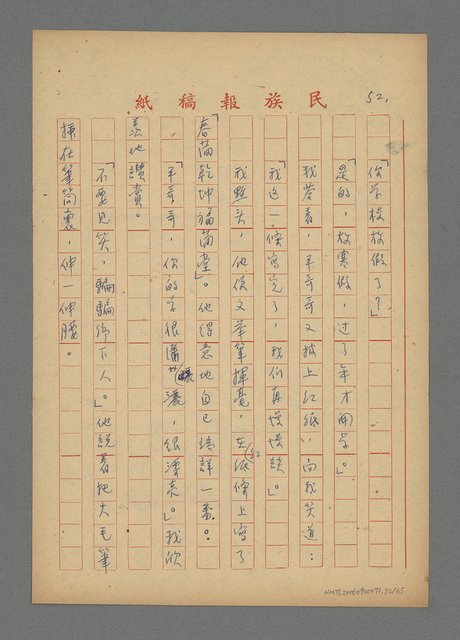 民族報稿紙
52.
「你學校放假了?」
「是的,放寒假,過了年才開學。」
我答着,平哥哥又攤上紅紙,向我笑道:
「我這一條寫完了,我們再慢慢談。」
我點頭,他便又舉筆揮毫,在紙條上寫了
「春滿乾坤福滿堂」。他得意地自己端詳一番。
「平哥哥,你的字很瀟灑,很漂亮。」我欣
羨地讚賞。
「不要見笑,騙騙鄉下人。」他說着把大毛筆
插在筆筒裏,伸一伸腰。
NMTL20060900071.52/65